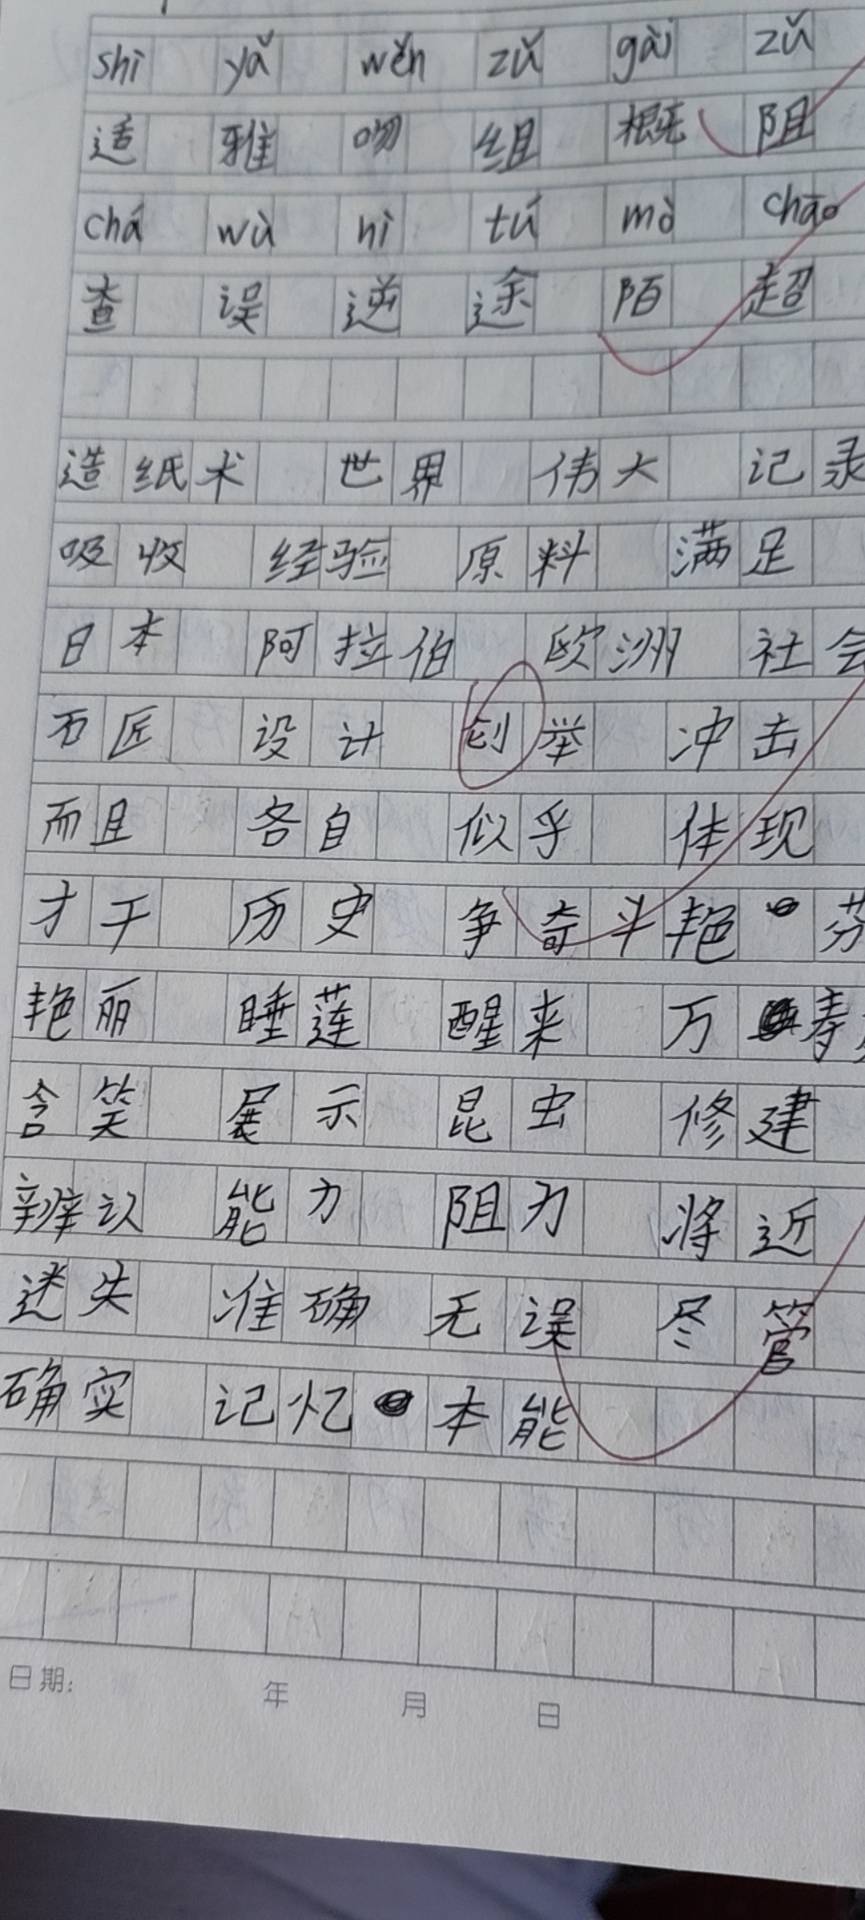 shì yǎ wěn zǔ gài zǔ
适 雅 吻 组 概 阻
chá wù nì tú mò chāo
查 误 逆 途 陌 超
造纸术 世界 伟大 记录
吸收 经验 原料 满足
日本 阿拉伯 欧洲 社会
石匠 设计 创举 冲击
而且 各自 似乎 体现
才干 历史 争奇斗艳 芬
艳丽 睡莲 醒来 万寿
含笑 展示 昆虫 修建
辨认 能力 阻力 将近
迷失 准确无误 尽管
确实 记忆 本能
日期: 年 月 日